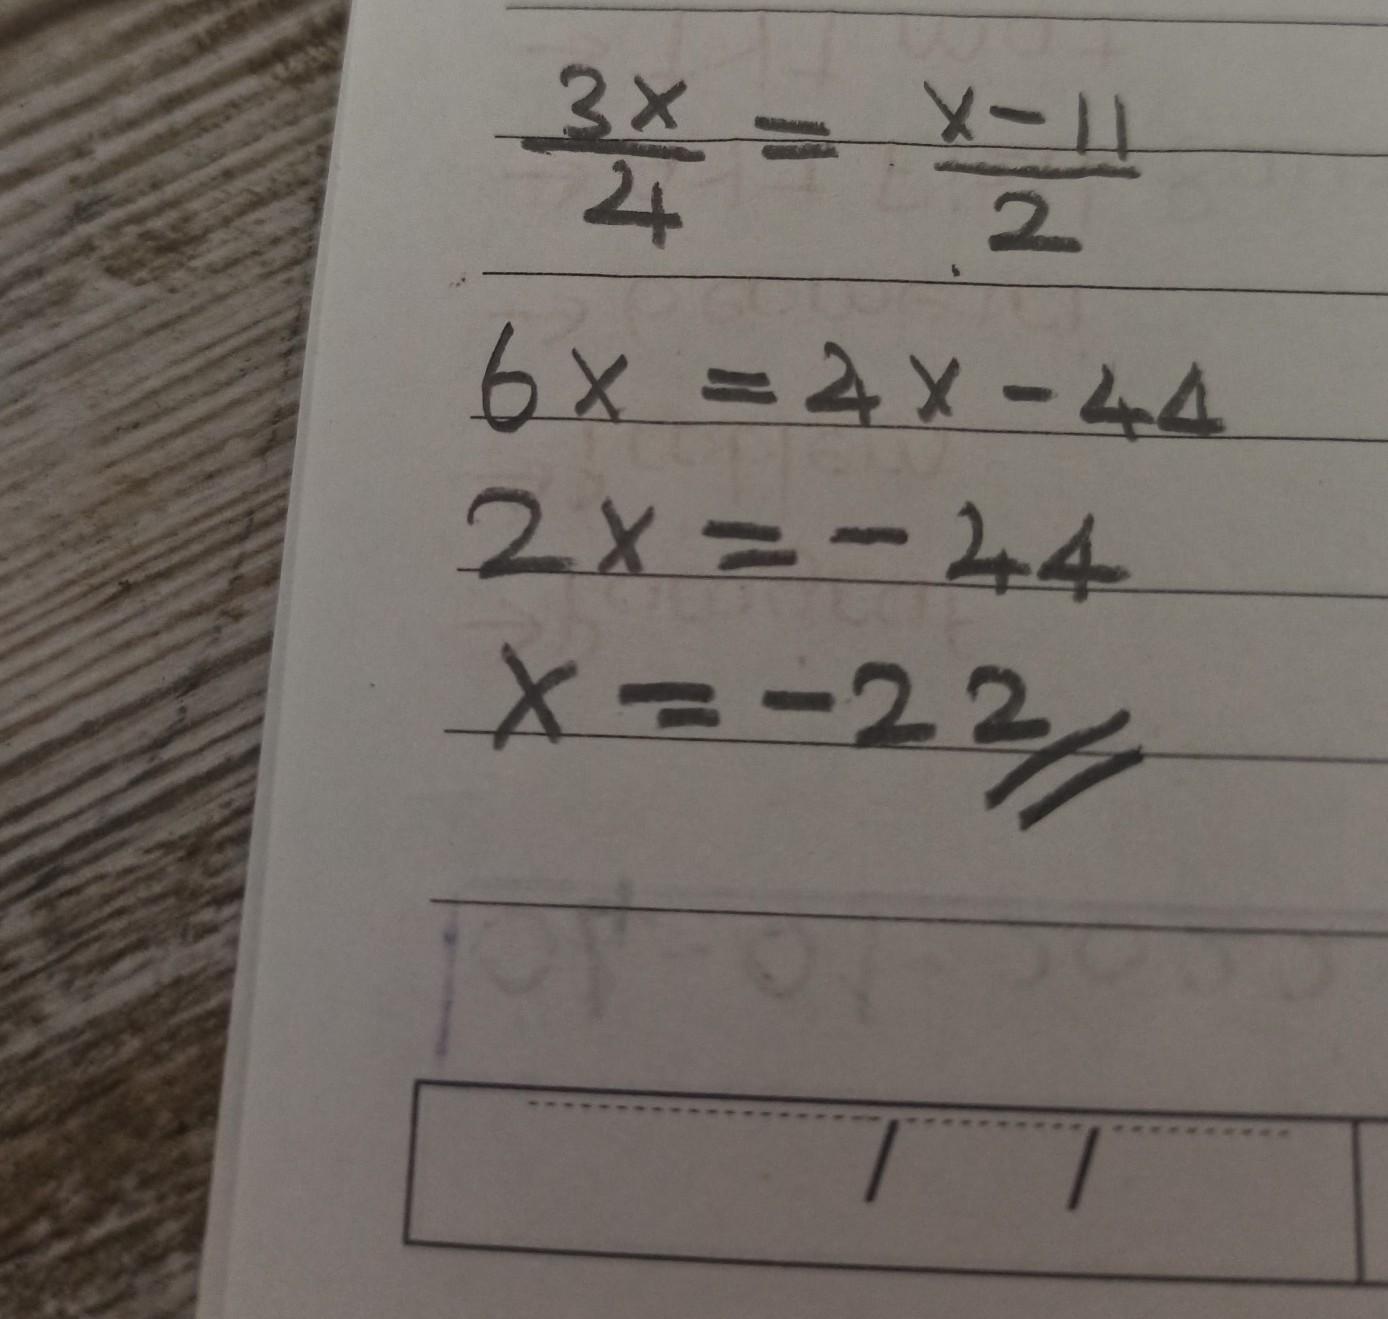 3x/4 = x-11/2
6x = 4x - 44
2x = - 44
x = - 22//
/ /